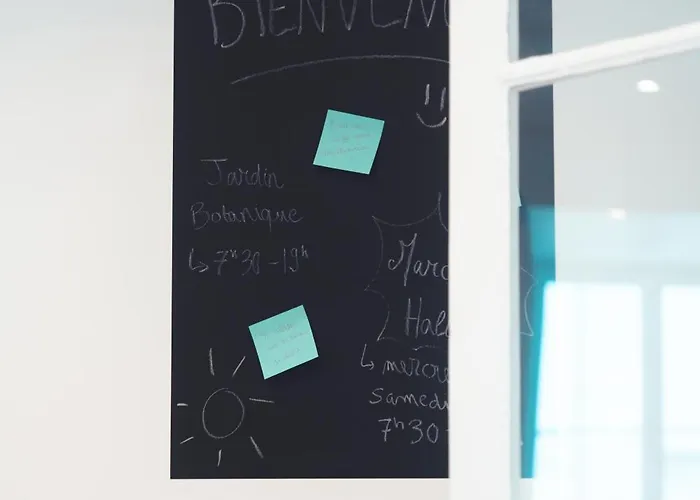 BIENVEN
Jardin
Botanique
↳ 7h30-19h
Marc
Hall
↳ mercre
Samed
7h30-